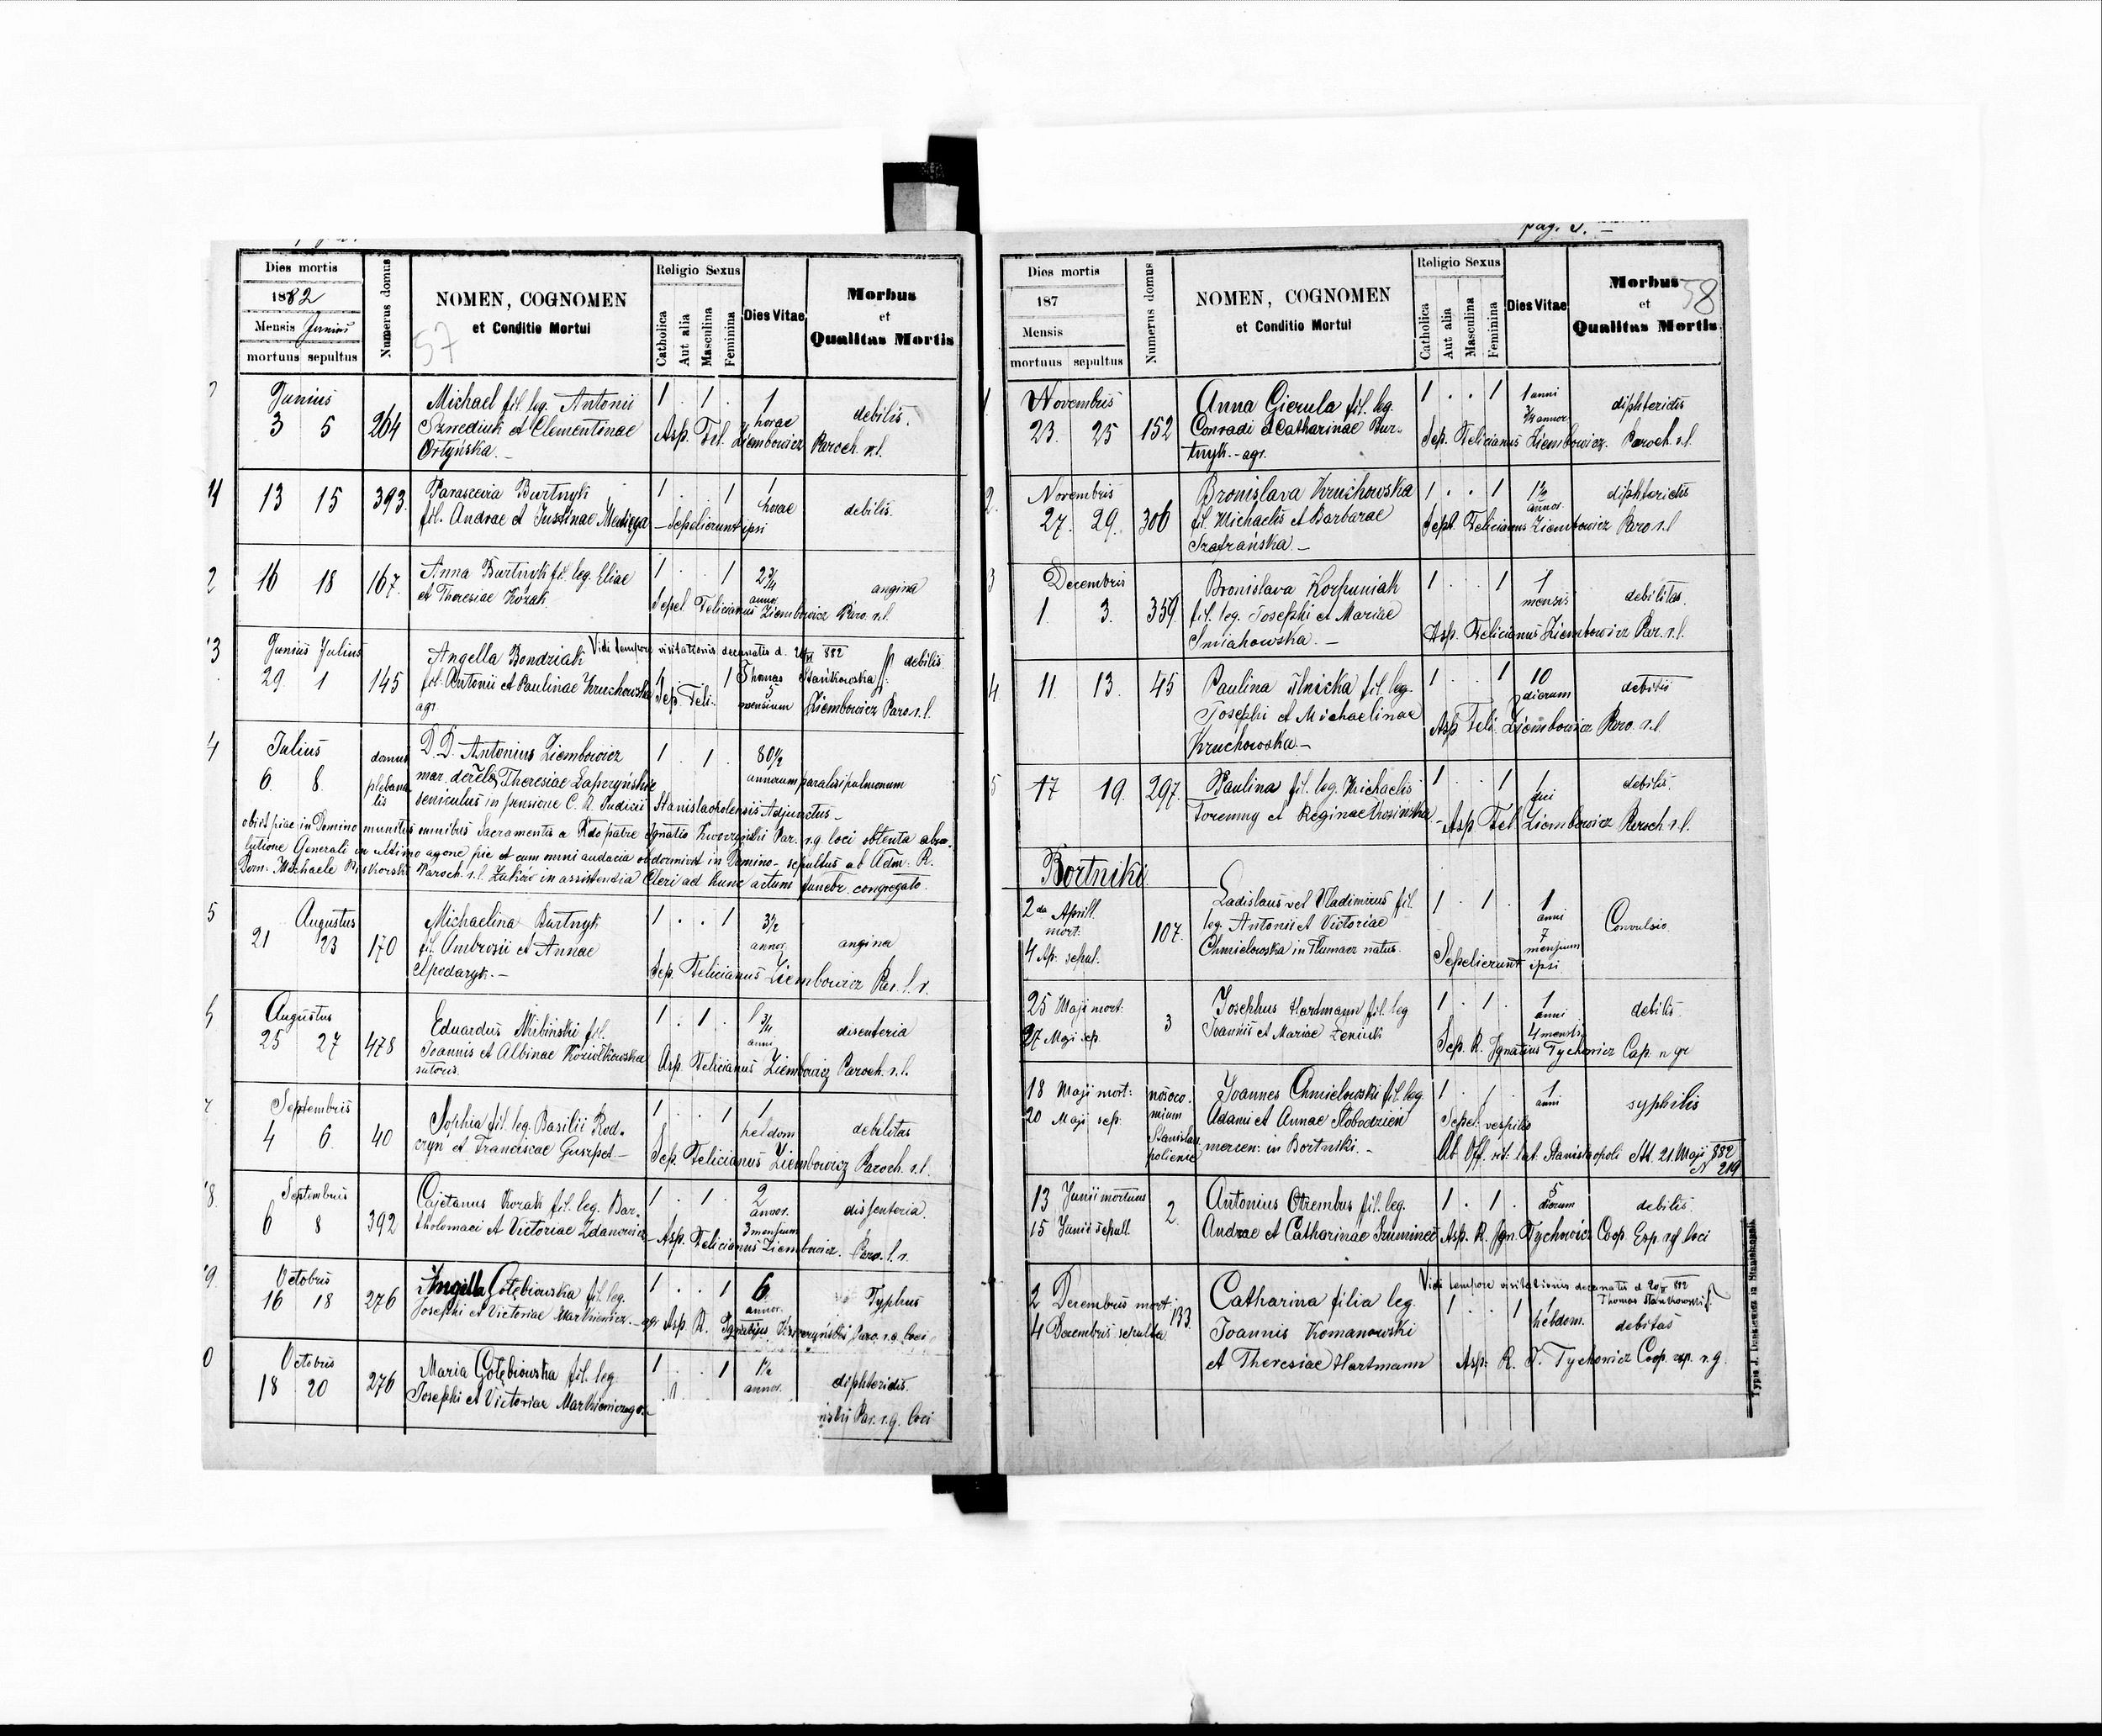 Dies mortis
1882
Mensis Junius
mortuus sepultus
Numerus domus
NOMEN, COGNOMEN
et Conditio Mortui
57
Religio Sexus
Catholica
Aut alia
Masculina
Feminina
Dies Vitae
Morbus
et
Qualitas Mortis
Junius
3 5 264
Michael fil. leg. Antonii
Szwediuk et Clementinae
Ortyńska. –
1 . 1 . 1 horae debilis.
Asp. Fel. Ziembowicz Paroch. r.l.
13 15 393.
Parascevia Burtnyk
fil. Andrae et Justinae
1 . . 1 1 horae debilis.
– Sepelierunt ipsi
2
16 18 167.
Anna Burtnyk fil. leg. Eliae
et Theresiae Kozak.
1 . . 1 2 3/4 annor. angina
Sepel Felicianus Ziembowicz Paro. r.l.
3
Junius Julius
29. 1 145
Angella Bondziak
fil. Antonii et Paulinae Kruchowska
agr.
Vidi tempore visitationis decanatis d. 882
Thomas Stankowski
1 5 mensium debilis
Sep. Feli. Ziembowicz Paro. r.l.
4
Julius
6. 8. domus plebanalis
D. D. Antonius Ziembowicz
mar. Theresiae
seniculus in pensione C. R. Judicii Stanislaopolensis Adjunctus –
1 . 1 . 80 1/2 annorum paralisi pulmonum
obiit piae in Domino munitus omnibus Sacramentis a Rdo patre Ignatio Par. r.g. loci obtenta abso-
lutione Generali in ultimo agone pie et cum omni audacia obdormivit in Domino – sepultus ab Adm. R.
Dom. Michaele Paroch. r.l. in assistentia Cleri ad hunc actum funebr. congregato.
5
Augustus
21 23 170
Michaelina Burtnyk
fil. Ambrosii et Annae
1 . . 1 3 1/2 annor. angina
Sep. Felicianus Ziembowicz Par. l. r.
Augustus
25 27 478
Eduardus fil.
Joannis et Albinae
sutoris.
1 . 1 . 1 3/4 anni disenteria
Asp. Felicianus Ziembowicz Paroch. r.l.
Septembris
4 6. 40
Sophia fil. leg. Basilii Rod-
czyn et Franciscae –
1 . . 1 1 hebdom debilitas
Sep. Felicianus Ziembowicz Paroch. r.l.
8.
Septembris
6 8 392
Cajetanus Kozak fil. leg. Bar-
tholomaei et Victoriae Zdanowicz
1 . 1 . 2 annor. 3 mensium dissenteria.
Asp. Felicianus Ziembowicz. Paro. l. r.
9.
Octobris
16 18 276
Angella Gołębiowska fil. leg.
Josephi et Victoriae Markiewicz. – agr.
1 . . 1 6 annor. Typhus
Asp. R. Ignatius Paro. r.g. loci
0
Octobris
18 20 276
Maria Gołębiowska fil. leg.
Josephi et Victoriae Markiewicz
1 . . 1 1 1/2 annor. diphteridis.
Par. r.g. loci
pag.
Dies mortis
187
Mensis
mortuus sepultus
Numerus domus
NOMEN, COGNOMEN
et Conditio Mortui
Religio Sexus
Catholica
Aut alia
Masculina
Feminina
Dies Vitae
Morbus
et
Qualitas Mortis
58
1
Novembris
23. 25 152
Anna Gierula fil. leg.
Conradi et Catharinae Bur-
tnyk. – agr.
1 . . 1 1 anni diphteridis
Sep. Felicianus Ziembowicz. Paroch. r.l.
2.
Novembris
27. 29. 306
Bronislava Kruchowska
fil. Michaelis et Barbarae
Szafrańska. –
1 . . 1 1 1/2 annor. diphterictis
Sept. Felicianus Ziembowicz Paro r.l
3
Decembris
1. 3. 359.
Bronislava Korpuniak
fil. leg. Josephi et Mariae
Smiahowska. –
1 . . 1 1 mensis debilitas.
Asp. Felicianus Ziembowicz Par. r.l.
4
11. 13. 45
Paulina Ilnicka fil. leg.
Josephi et Michaelinae
Kruchowska –
1 . . 1 10 dierum debilis
Asp Feli. Ziembowicz Paro. r.l.
5
17 19. 297.
Paulina fil. leg. Michaelis
Foremny et Reginae
1 . . 1 1 diei debilis.
– Asp Fel Ziembowicz Paroch r.l.
Bortniki
2da Aprill. mort.
4 Ap. sepul.
107.
Ladislaus vel Vladimirus fil.
leg. Antonii et Victoriae
Chmielowska in Tłumacz natus.
1 . 1 . 1 anni 7 mensium Convulsio.
Sepelierunt ipsi
25 Maji mort:
27 Maji sep.
3
Josephus Hartmann fil. leg
Joannis et Mariae Zeniuk
1 . 1 . 1 anni 4 mensis debilis.
Sep. R. Ignatius Tychowicz Cap. r gr
18 Maji mort:
20 Maji sep:
nosocomium Stanislaopoliense
Joannes Chmielowski fil. leg.
Adami et Annae Słobodzien
mercen: in Bortniki. –
1 . 1 anni syphilis
Sepel. vespillo
Ab. Off. rit: lat: Stanislaopoli dtt. 21. Maji 882
N 219
13 Junii mortuus
15 Junii sepult.
2.
Antonius Otrembus fil. leg.
Andrae et Catharinae
1 . 1 . 5 dierum debilis.
Asp. R. Ign. Tychowicz Coop. Exp. rg loci
Vidi tempore visitationis decanatis d 882
Thomas Stankowski
2 Decembris mort.
4 Decembris sepulta
133.
Catharina filia leg.
Joannis Romanowski
et Theresiae Hartmann
1 . . 1 1 hebdom. debitas
Asp: R. J. Tychowicz Coop. exp. r.g.